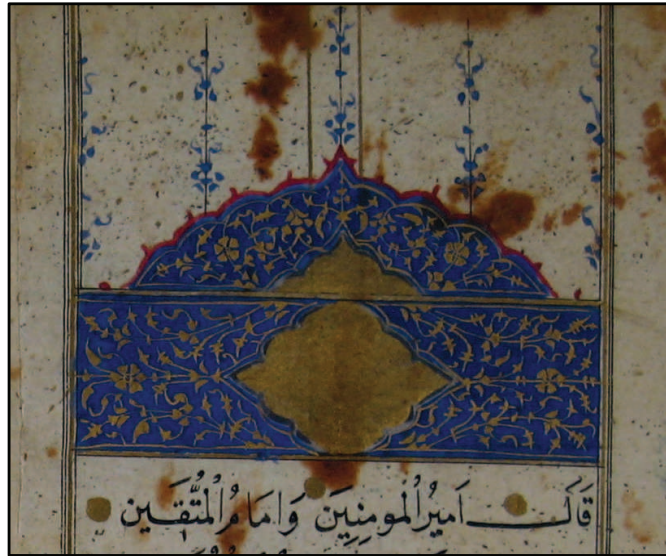 قَالَ اَمِيرُ الْمومِنِينَ وَاِمَامُ الْمُتَّقِين